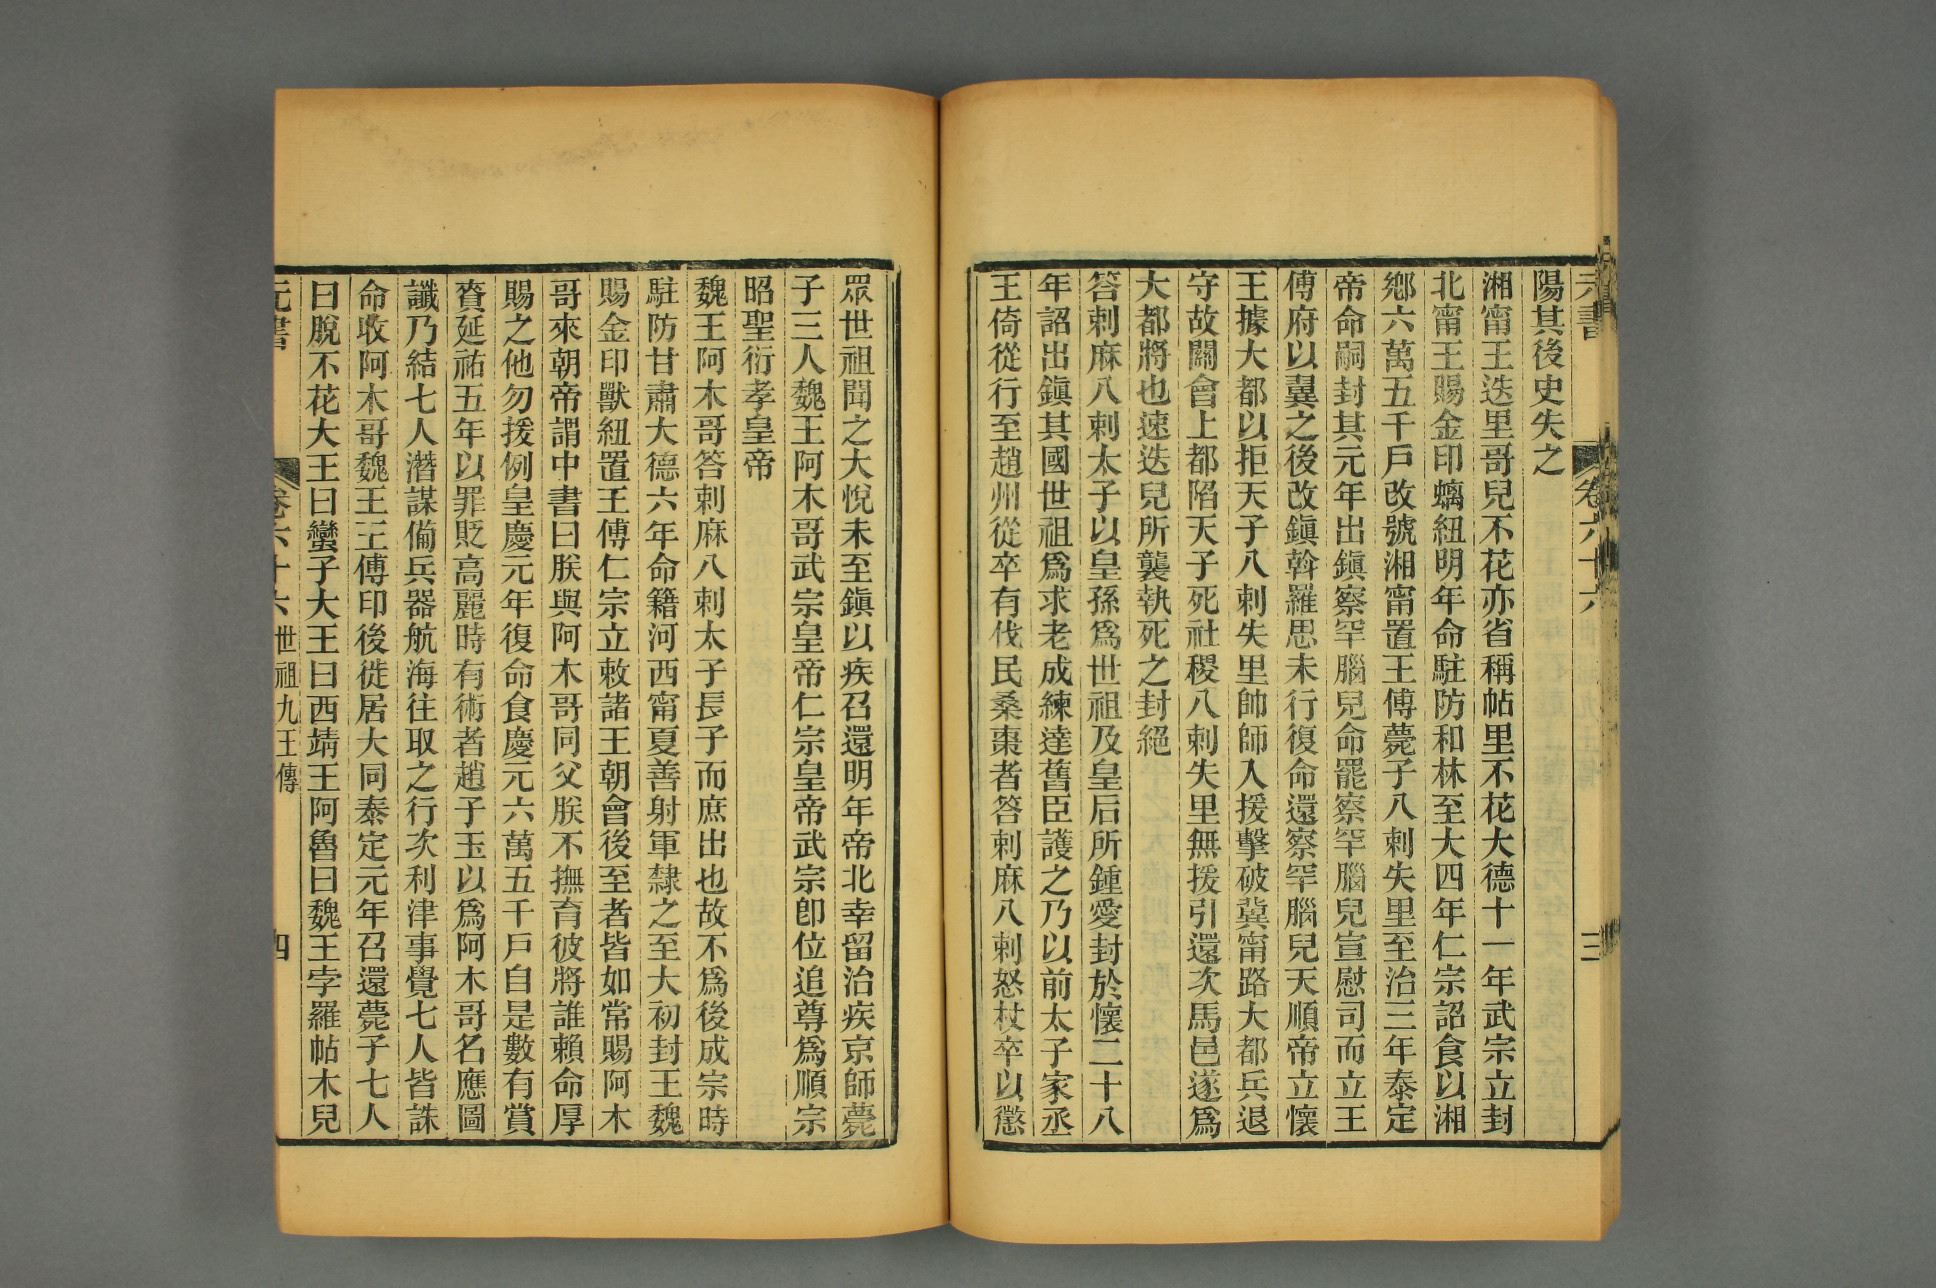 元書
卷六十六
三
陽其後史失之
湘甯王迭里哥兒不花亦省稱帖里不花大德十一年武宗立封
北甯王賜金印螭紐明年命駐防和林至大四年仁宗詔食以湘
鄉六萬五千戶改號湘甯置王傅薨子八剌失里至治三年泰定
帝命嗣封其元年出鎭察罕腦兒命罷察罕腦兒宣慰司而立王
傅府以翼之後改鎭斡羅思未行復命還察罕腦兒天順帝立懷
王據大都以拒天子八剌失里帥師入援擊破冀甯路大都兵退
守故關會上都陷天子死社稷八剌失里無援引還次馬邑遂爲
大都將也速迭兒所襲執死之封絕
答剌麻八剌太子以皇孫爲世祖及皇后所鍾愛封於懷二十八
年詔出鎭其國世祖爲求老成練達舊臣護之乃以前太子家丞
王倚從行至趙州從卒有伐民桑棗者答剌麻八剌怒杖卒以懲
眾世祖聞之大悅未至鎭以疾召還明年帝北幸留治疾京師薨
子三人魏王阿木哥武宗皇帝仁宗皇帝武宗卽位追尊爲順宗
昭聖衍孝皇帝
魏王阿木哥答剌麻八剌太子長子而庶出也故不爲後成宗時
駐防甘肅大德六年命籍河西甯夏善射軍隸之至大初封王魏
賜金印獸紐置王傅仁宗立敕諸王朝會後至者皆如常賜阿木
哥來朝帝謂中書曰朕與阿木哥同父朕不撫育彼將誰賴命厚
賜之他勿援例皇慶元年復命食慶元六萬五千戶自是數有賞
賚延祐五年以罪貶高麗時有術者趙子玉以爲阿木哥名應圖
讖乃結七人潛謀備兵器航海往取之行次利津事覺七人皆誅
命收阿木哥魏王王傅印後徙居大同泰定元年召還薨子七人
曰脫不花大王曰蠻子大王曰西靖王阿魯曰魏王孛羅帖木兒
元書
卷六十六
世祖九王傳
四